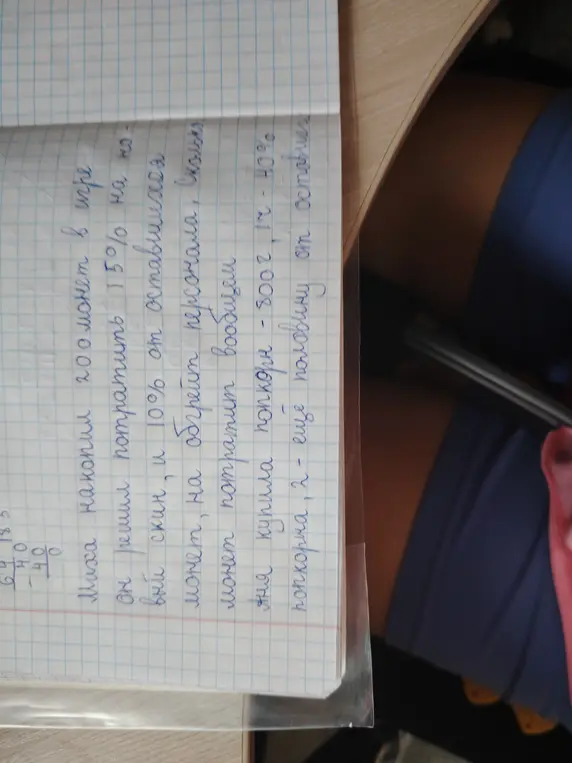 64
- 40
40
0
Миха накопил 200 монет в игре
он решил потратить 15% на но-
вый скин, и 10% от оставшихся
монет, на обгрейт персонала, Сколько
монет потратит вообщем
Аня купила попкорн - 800г, 1ч - 40%
попкорна, 2 - ещё половину от оставших